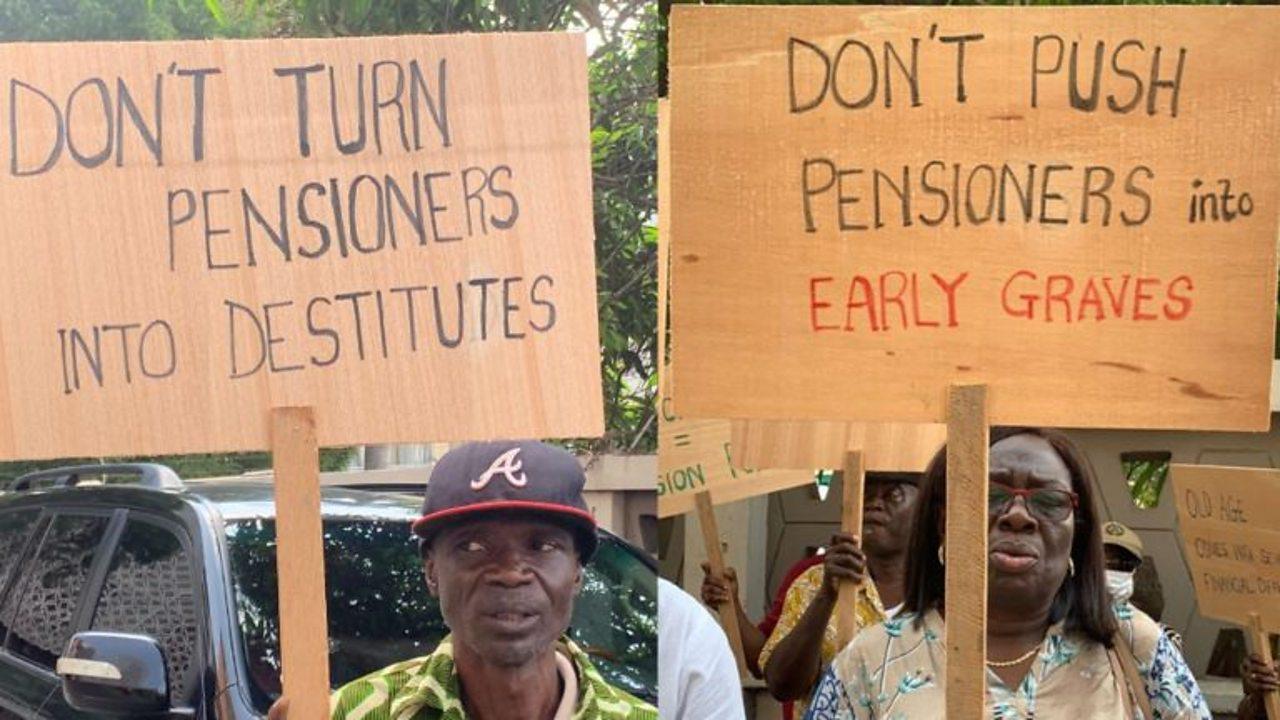 DON'T TURN
PENSIONERS
INTO DESTITUTES
A
DON'T PUSH
PENSIONERS into
EARLY GRAVES
=
SION
OLD AGE
FINANCIAL